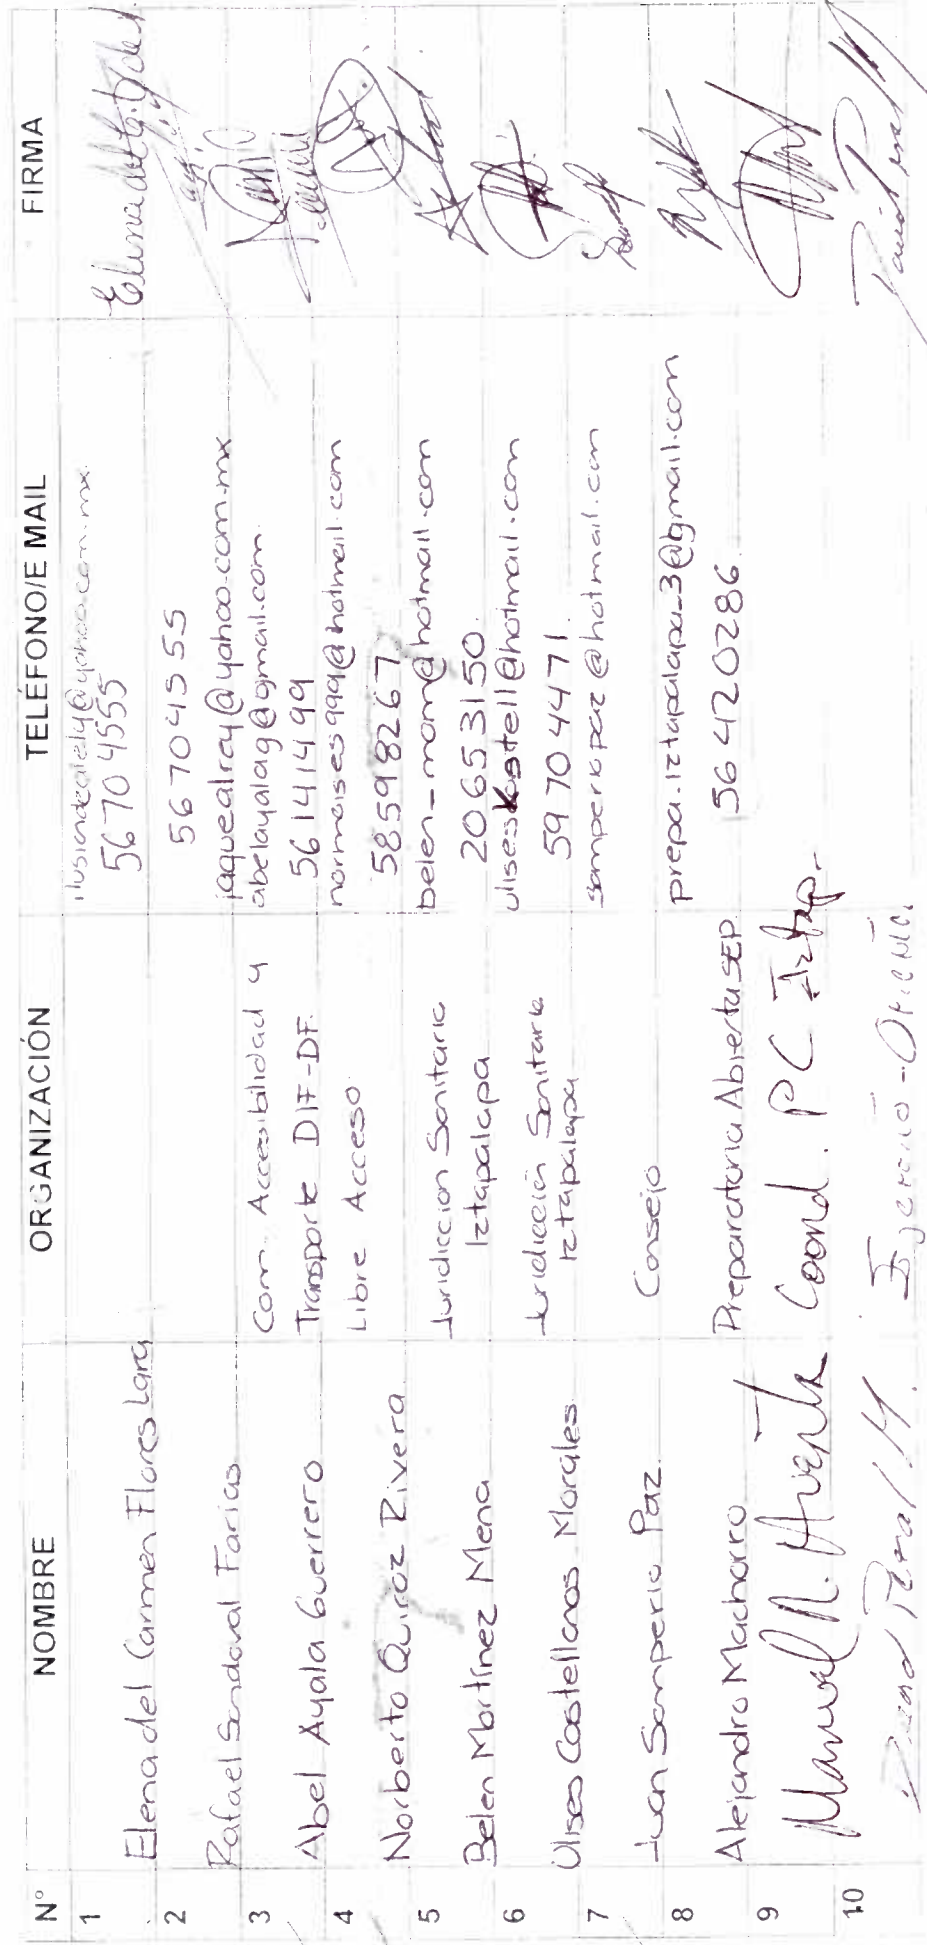 N° NOMBRE ORGANIZACIÓN TELÉFONO/E MAIL FIRMA
1 Elena del Carmen Flores Lara ilusiondeately@yahoo.com.mx.
5670 4555
2 Rafael Sandoval Farias 5670 4555
jaquealray@yahoo.com.mx
3 Abel Ayala Guerrero Com. Accesibilidad y
Transporte DIF-DF. abelayalag@gmail.com.
56 14 14 99
4 Norberto Quiroz Rivera Libre Acceso. normoises999@hotmail.com
58598267
5 Belen Martínez Mena Juridiccion Sanitaria
Iztapalapa belen-mom@hotmail.com
20653150.
6 Ulises Castellanos Morales Juridicción Sanitaria
Iztapalapa uliseskastell@hotmail.com
59704471.
7 Juan Samperio Paz Consejo samperiopaz@hotmail.com
8 Alejandro Machorro Preparatoria Abierta SEP prepa.iztapalapa-3@gmail.com
56420286.
9 Manuel N. Huerta Coord. PC Iztap.
10 David M.